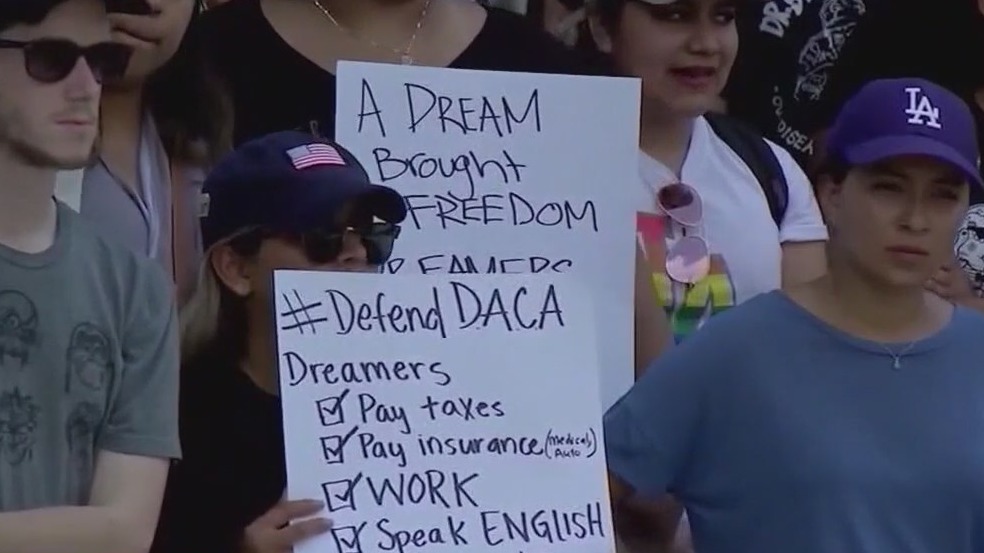 A DREAM
Brought
FREEDOM
DREAMERS
#Defend DACA
Dreamers
☑ Pay taxes
☑ Pay insurance (medical, Auto)
☑ WORK
☑ Speak ENGLISH
LA